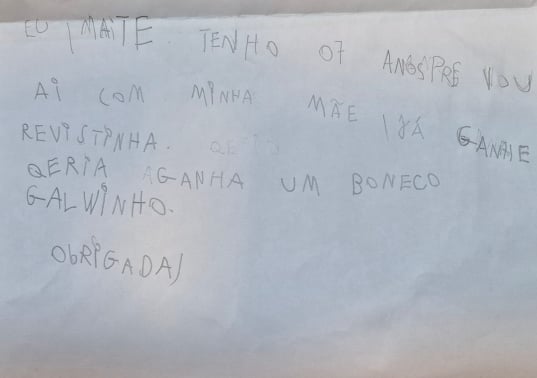 EU, MAITE. TENHO 07 ANOS, PRE VOU
AI COM MINHA MÃE, JÁ GANHE
REVISTINHA.
QERIA AGANHA UM BONECO
GALWINHO.
OBRIGADA,